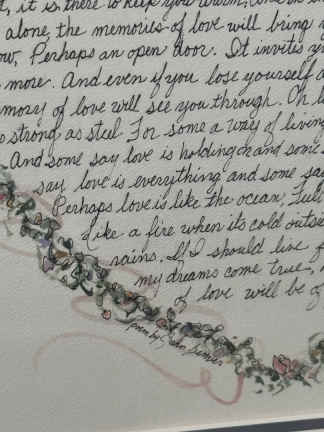 t, it is there to keep you warm, and
alone, the memories of love will bring y
ow, Perhaps an open door. It invites yo
more. And even if you lose yourself a
mory of love will see you through. Oh l
s strong as steel. For some a way of living
. And some say love is holding on and some
say love is everything and some say
Perhaps love is like the ocean, Full
Like a fire when its cold outside
rains. If I should live f
my dreams come true,
of love will be o
poem by John Denver